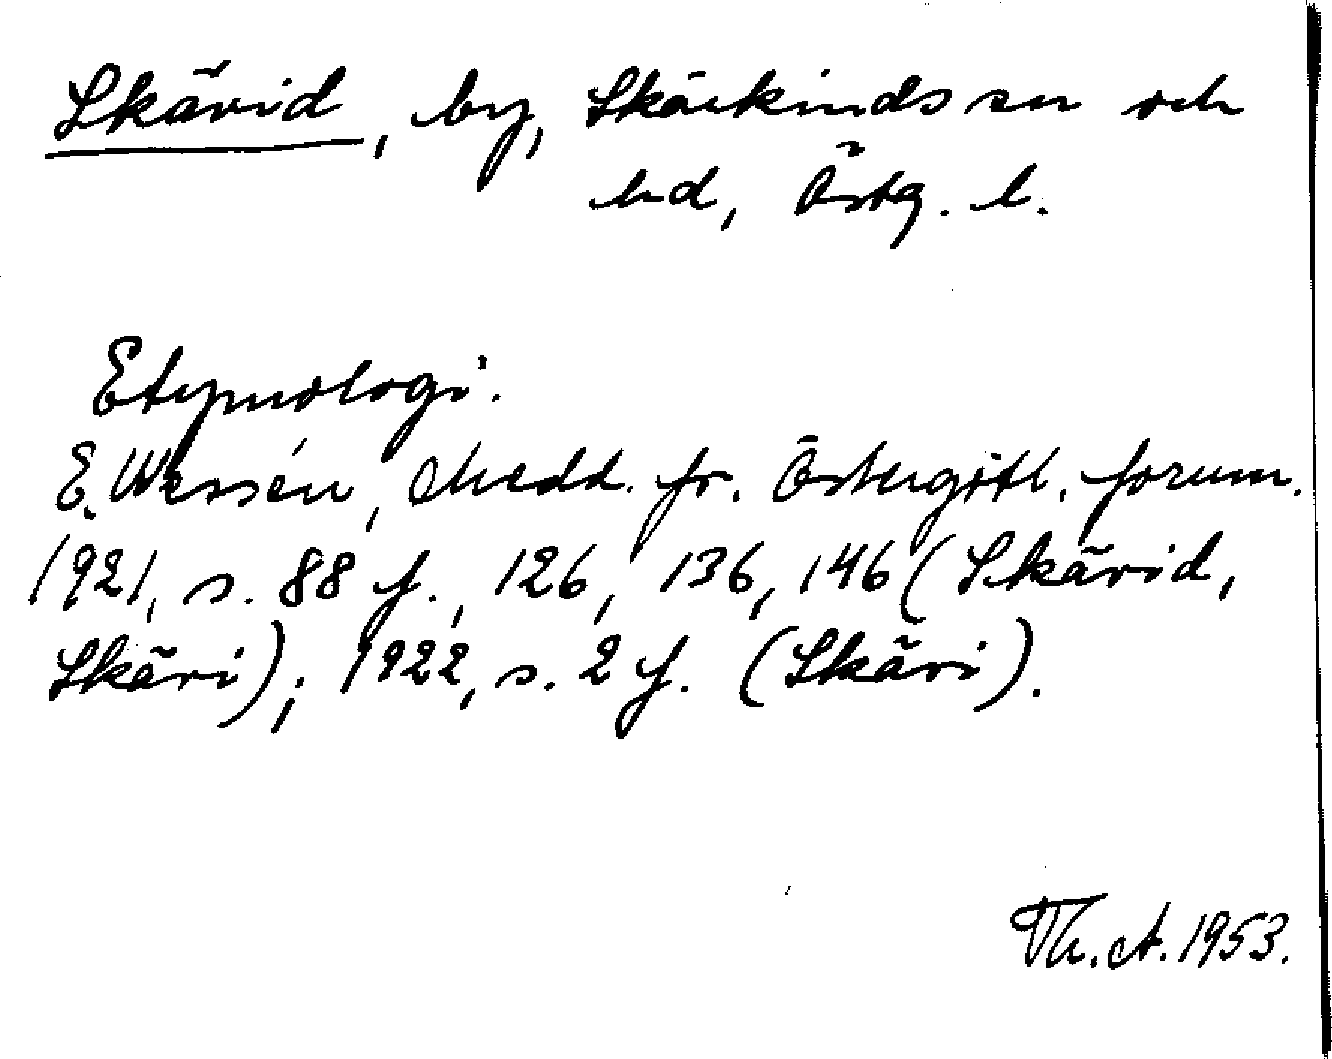 Skävid, by, Skärkinds sn och
hd, Östg. l.
Etymologi.
E. Wessén, Medd. fr. Östergötl. fornm.
1921, s. 88 f., 126, 136, 146 (Skävid,
Skävi); 1922, s. 2 f. (Skävi).
Th. A. 1953.